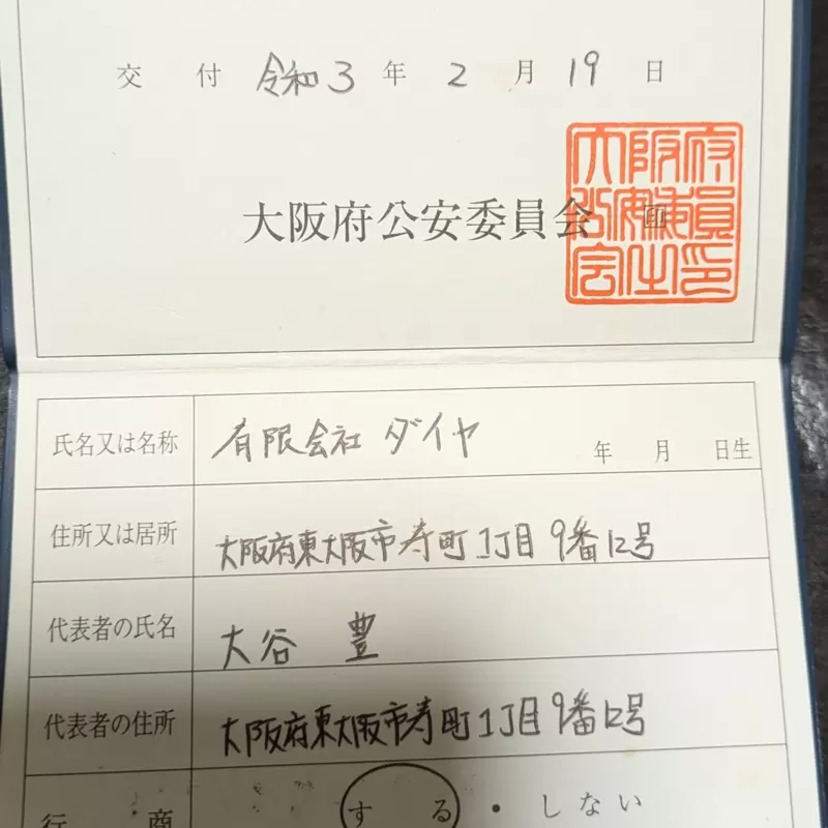 交付 令和3年2月19日
大阪府公安委員会 印
大阪府公安委員会印
氏名又は名称 有限会社 ダイヤ 年 月 日生
住所又は居所 大阪府東大阪市寿町1丁目9番12号
代表者の氏名 大谷 豊
代表者の住所 大阪府東大阪市寿町1丁目9番12号
行商 する・しない